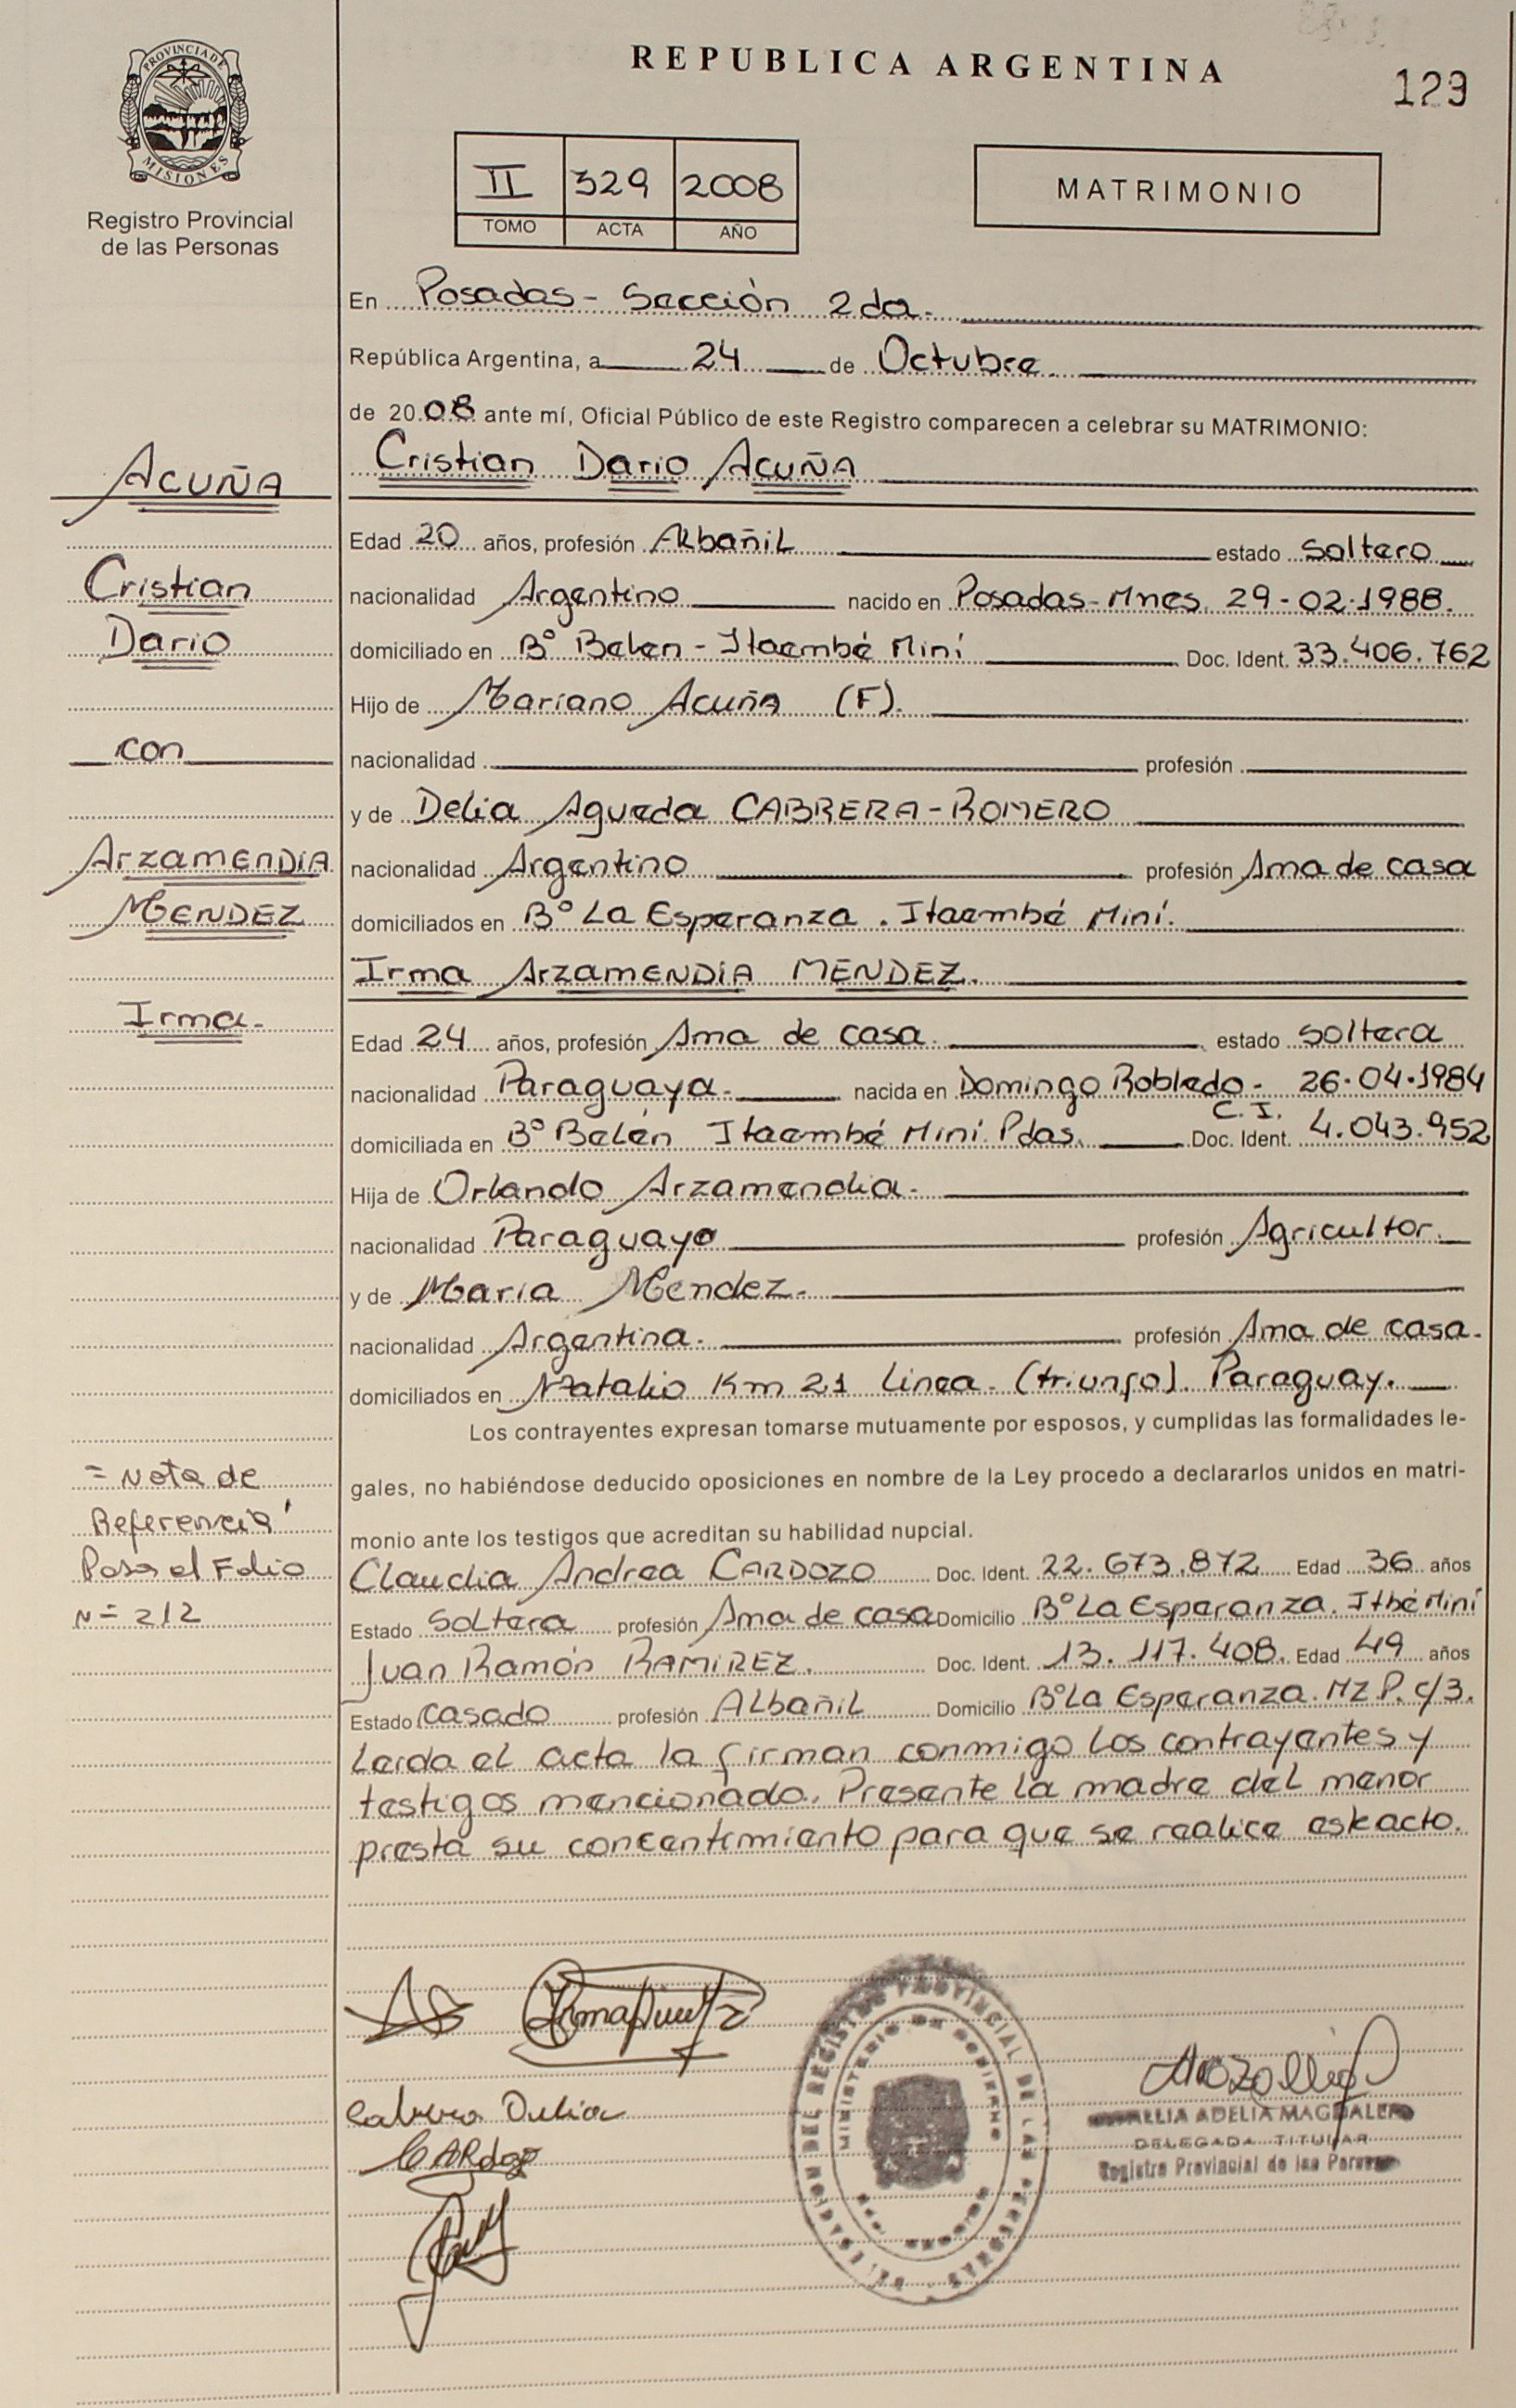 REPUBLICA ARGENTINA
129
PROVINCIA DE
MISIONES
Registro Provincial
de las Personas
II 329 2008
TOMO ACTA AÑO
MATRIMONIO
En Posadas - Sección 2da.
República Argentina, a 24 de Octubre.
de 2008 ante mí, Oficial Público de este Registro comparecen a celebrar su MATRIMONIO:
Cristian Dario Acuña
Edad 20 años, profesión Albañil estado soltero
nacionalidad Argentino nacido en Posadas-Mnes. 29-02-1988.
domiciliado en Bº Belen - Itaembé Miní Doc. Ident. 33.406.762
Hijo de Mariano Acuña (F).
nacionalidad profesión
y de Delia Agueda CABRERA-ROMERO
nacionalidad Argentino profesión Ama de casa
domiciliados en Bº La Esperanza. Itaembé Miní.
Irma ArzamENDiA MENDEZ.
Edad 24 años, profesión Ama de casa. estado soltera
nacionalidad Paraguaya. nacida en Domingo Robledo - 26-04-1984
domiciliada en Bº Belén Itaembé Miní. Pdas. Doc. Ident. C.I. 4.043.952
Hija de Orlando Arzamendia.
nacionalidad Paraguayo profesión Agricultor.
y de Maria Mendez.
nacionalidad Argentina. profesión Ama de casa.
domiciliados en Natalio Km 21 Linea. (triunfo). Paraguay.
Los contrayentes expresan tomarse mutuamente por esposos, y cumplidas las formalidades le-
gales, no habiéndose deducido oposiciones en nombre de la Ley procedo a declararlos unidos en matri-
monio ante los testigos que acreditan su habilidad nupcial.
Claudia Andrea CARDOZO Doc. Ident. 22.673.872 Edad 36 años
Estado Soltera profesión Ama de casa Domicilio Bº La Esperanza. Itbé Miní
Juan Ramón RAMIREZ. Doc. Ident. 13.117.408. Edad 49 años
Estado casado profesión Albañil Domicilio Bº La Esperanza. Mz P. c/3.
Leida el acta la firman conmigo los contrayentes y
testigos mencionado. Presente la madre del menor
presta su concentimiento para que se realice este acto.
ACUÑA
Cristian
Dario
con
ArzamENDiA
MENDEZ
Irma.
= Nota de
Referencia
Pasa al Folio
Nº = 212
Cabrera Delia
CARdozo
ADELIA MAGDALENA
DELEGADA TITULAR
Registro Provincial de las Personas
DEL REGISTRO PROVINCIAL DE LAS PERSONAS
MINISTERIO DE GOBIERNO